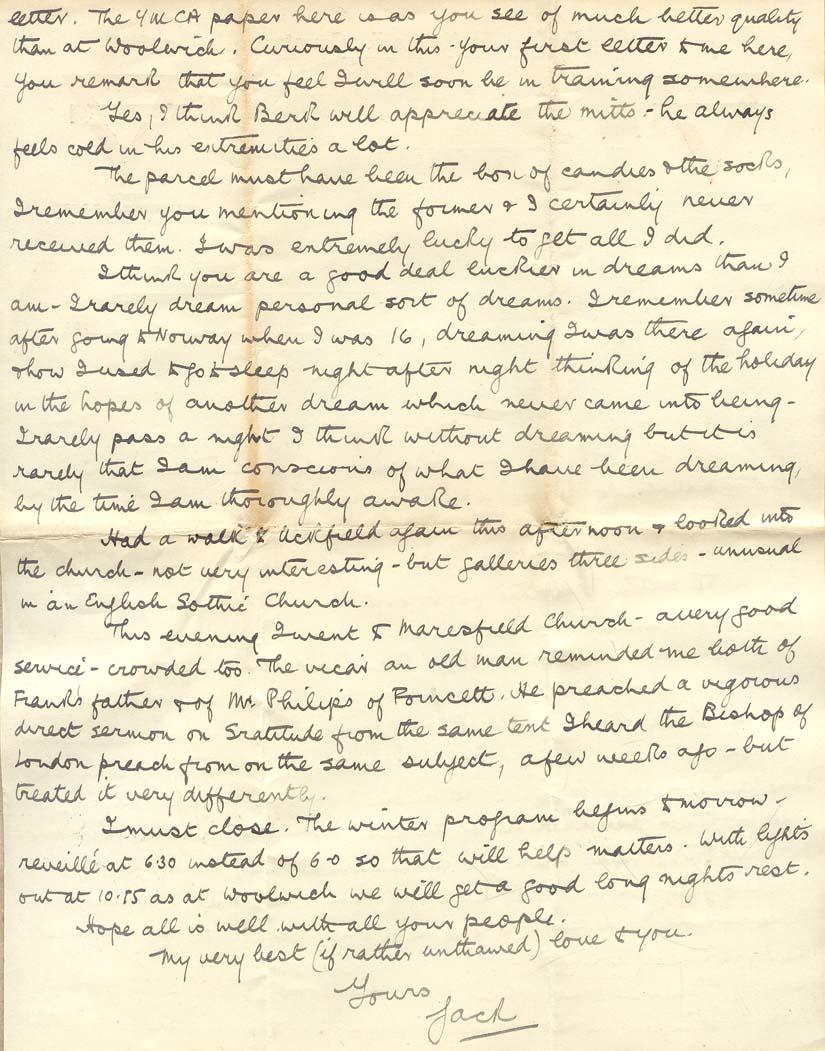 letter. The YMCA paper here is as you see of much better quality
than at Woolwich. Curiously in this - your first letter to me here,
you remark that you feel I will soon be in training somewhere.
Yes, I think Berk will appreciate the mitts - he always
feels cold in his extremities a lot.
The parcel must have been the box of candies & the socks,
I remember you mentioning the former & I certainly never
received them. I was extremely lucky to get all I did.
I think you are a good deal luckier in dreams than I
am - I rarely dream personal sort of dreams. I remember sometime
after going to Norway when I was 16, dreaming I was there again,
& how I used to go to sleep night after night thinking of the holiday
in the hopes of another dream which never came into being -
I rarely pass a night I think without dreaming but it is
rarely that I am conscious of what I have been dreaming,
by the time I am thoroughly awake.
Had a walk to Uckfield again this afternoon & looked into
the church - not very interesting - but galleries three sides - unusual
in an English Gothic Church.
This evening I went to Maresfield Church - a very good
service - crowded too. The vicar an old man reminded me both of
Franks father & of Mr. Philips of Forncett. He preached a vigorous
direct sermon on Gratitude from the same text I heard the Bishop of
London preach from on the same subject, a few weeks ago - but
treated it very differently.
I must close. The winter program begins tomorrow -
reveillé at 6.30 instead of 6-0 so that will help matters. With lights
out at 10.15 as at Woolwich we will get a good long nights rest.
Hope all is well with all your people.
My very best (if rather unthawed) love to you.
Yours
Jack